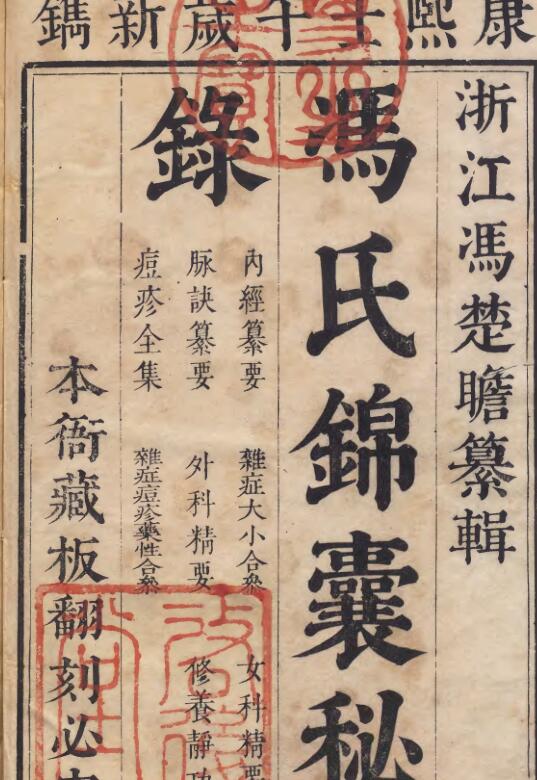 康熙壬午歲新鐫
浙江馮楚瞻纂輯
馮氏錦囊秘
錄
內經纂要 雜症大小合叅 女科精要
脉訣纂要 外科精要 修養靜功
痘疹全集 雜症痘疹藥性合叅
本衙藏板翻刻必